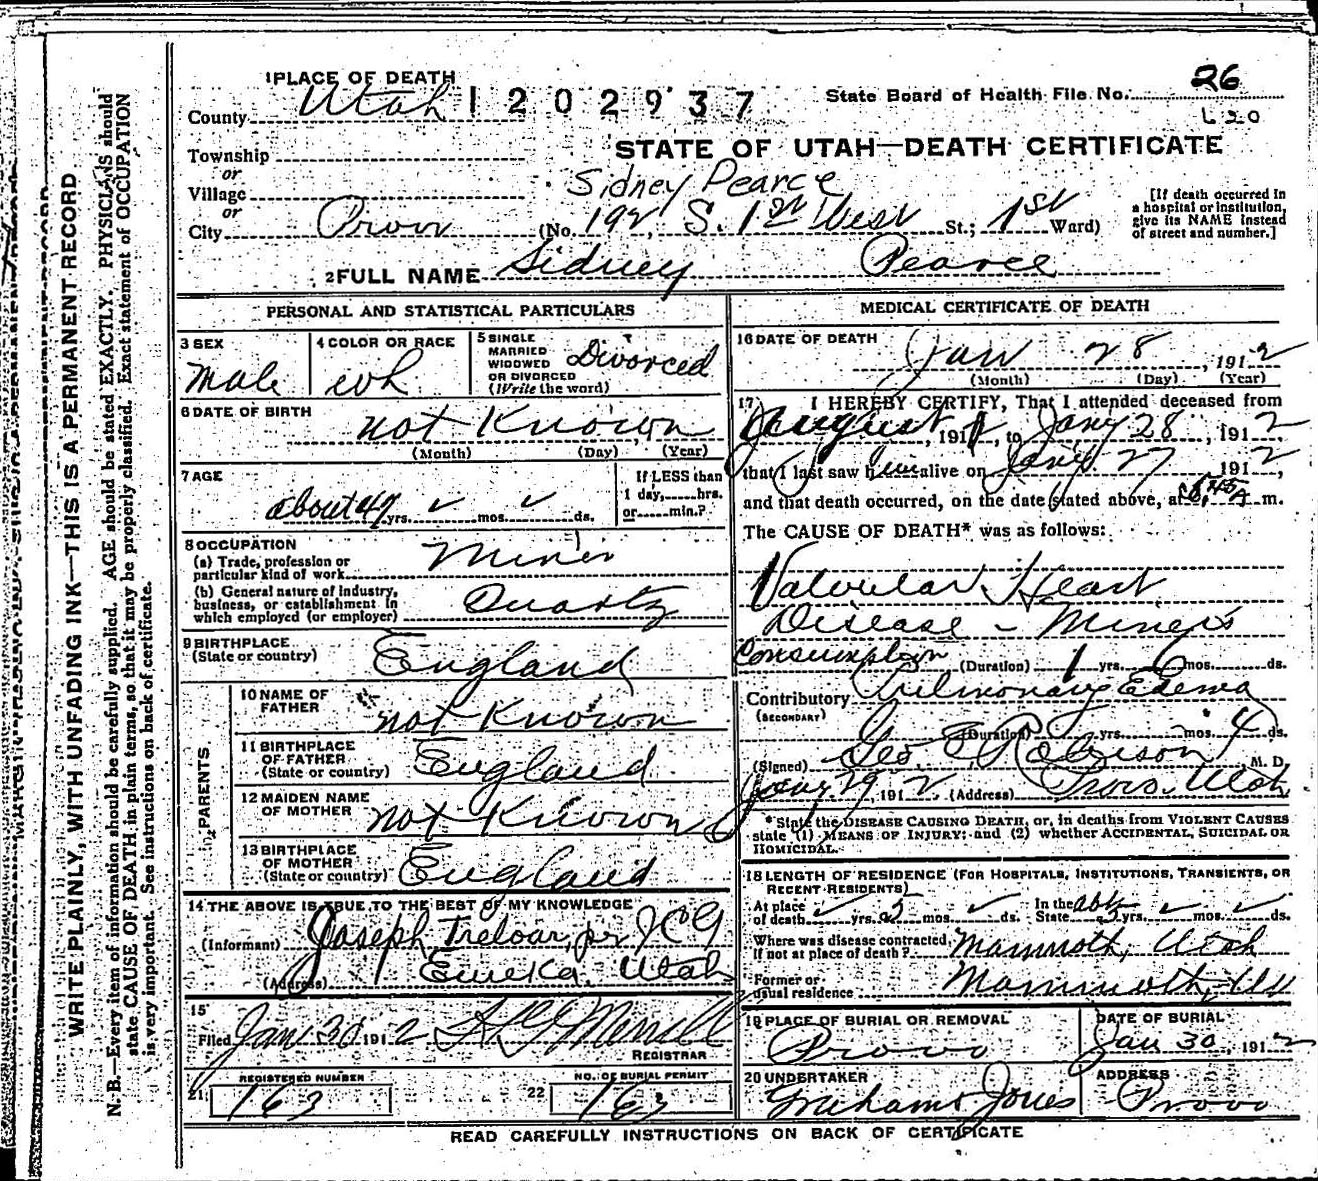 1 PLACE OF DEATH
County Utah 1202937
State Board of Health File No. 26
Township
or
Village
or
City Provo
STATE OF UTAH—DEATH CERTIFICATE
Sidney Pearce
(No. 192, S. 1st West St.; 1st Ward)
[If death occurred in
a hospital or institution,
give its NAME instead
of street and number.]
2 FULL NAME Sidney Pearce
PERSONAL AND STATISTICAL PARTICULARS
3 SEX
Male
4 COLOR OR RACE
wh
5 SINGLE
MARRIED
WIDOWED
OR DIVORCED
(Write the word)
Divorced
6 DATE OF BIRTH
not Known
(Month) (Day) (Year)
7 AGE
about 47 yrs. mos. ds.
If LESS than
1 day, hrs.
or min.?
8 OCCUPATION
(a) Trade, profession or
particular kind of work Miner
(b) General nature of industry,
business, or establishment in
which employed (or employer) Quartz
9 BIRTHPLACE
(State or country) England
PARENTS
10 NAME OF
FATHER not Known
11 BIRTHPLACE
OF FATHER
(State or country) England
12 MAIDEN NAME
OF MOTHER not Known
13 BIRTHPLACE
OF MOTHER
(State or country) England
14 THE ABOVE IS TRUE TO THE BEST OF MY KNOWLEDGE
(Informant) Joseph Treloar, per JCG
(Address) Eureka, Utah
15
Filed Jan 30 1912 Merrill
REGISTRAR
21 REGISTERED NUMBER
163
22 NO. OF BURIAL PERMIT
163
MEDICAL CERTIFICATE OF DEATH
16 DATE OF DEATH
Jan 28, 1912
(Month) (Day) (Year)
17 I HEREBY CERTIFY, That I attended deceased from
August, 1911, to Jany 28, 1912,
that I last saw him alive on Jany 27, 1912,
and that death occurred, on the date stated above, at A m.
The CAUSE OF DEATH* was as follows:
Valvular Heart
Disease - Miner's
Consumption
(Duration) 1 yrs. 6 mos. ds.
Contributory Pulmonary Edema
(SECONDARY)
(Duration) yrs. mos. 4 ds.
(Signed) Geo E Robison, M. D.
Jany 29, 1912, (Address) Provo, Utah
*State the DISEASE CAUSING DEATH, or, in deaths from VIOLENT CAUSES
state (1) MEANS OF INJURY; and (2) whether ACCIDENTAL, SUICIDAL OR
HOMICIDAL.
18 LENGTH OF RESIDENCE (FOR HOSPITALS, INSTITUTIONS, TRANSIENTS, OR
RECENT RESIDENTS)
At place
of death yrs. mos. ds.
In the
State yrs. mos. ds.
Where was disease contracted,
if not at place of death? Mammoth, Utah
Former or
usual residence Mammoth, Ut
19 PLACE OF BURIAL OR REMOVAL
Provo
DATE OF BURIAL
Jan 30, 1912
20 UNDERTAKER
Graham & Jones
ADDRESS
Provo
READ CAREFULLY INSTRUCTIONS ON BACK OF CERTIFICATE
WRITE PLAINLY, WITH UNFADING INK—THIS IS A PERMANENT RECORD
N. B.—Every item of information should be carefully supplied. AGE should be stated EXACTLY. PHYSICIANS should
state CAUSE OF DEATH in plain terms, so that it may be properly classified. Exact statement of OCCUPATION
is very important. See instructions on back of certificate.